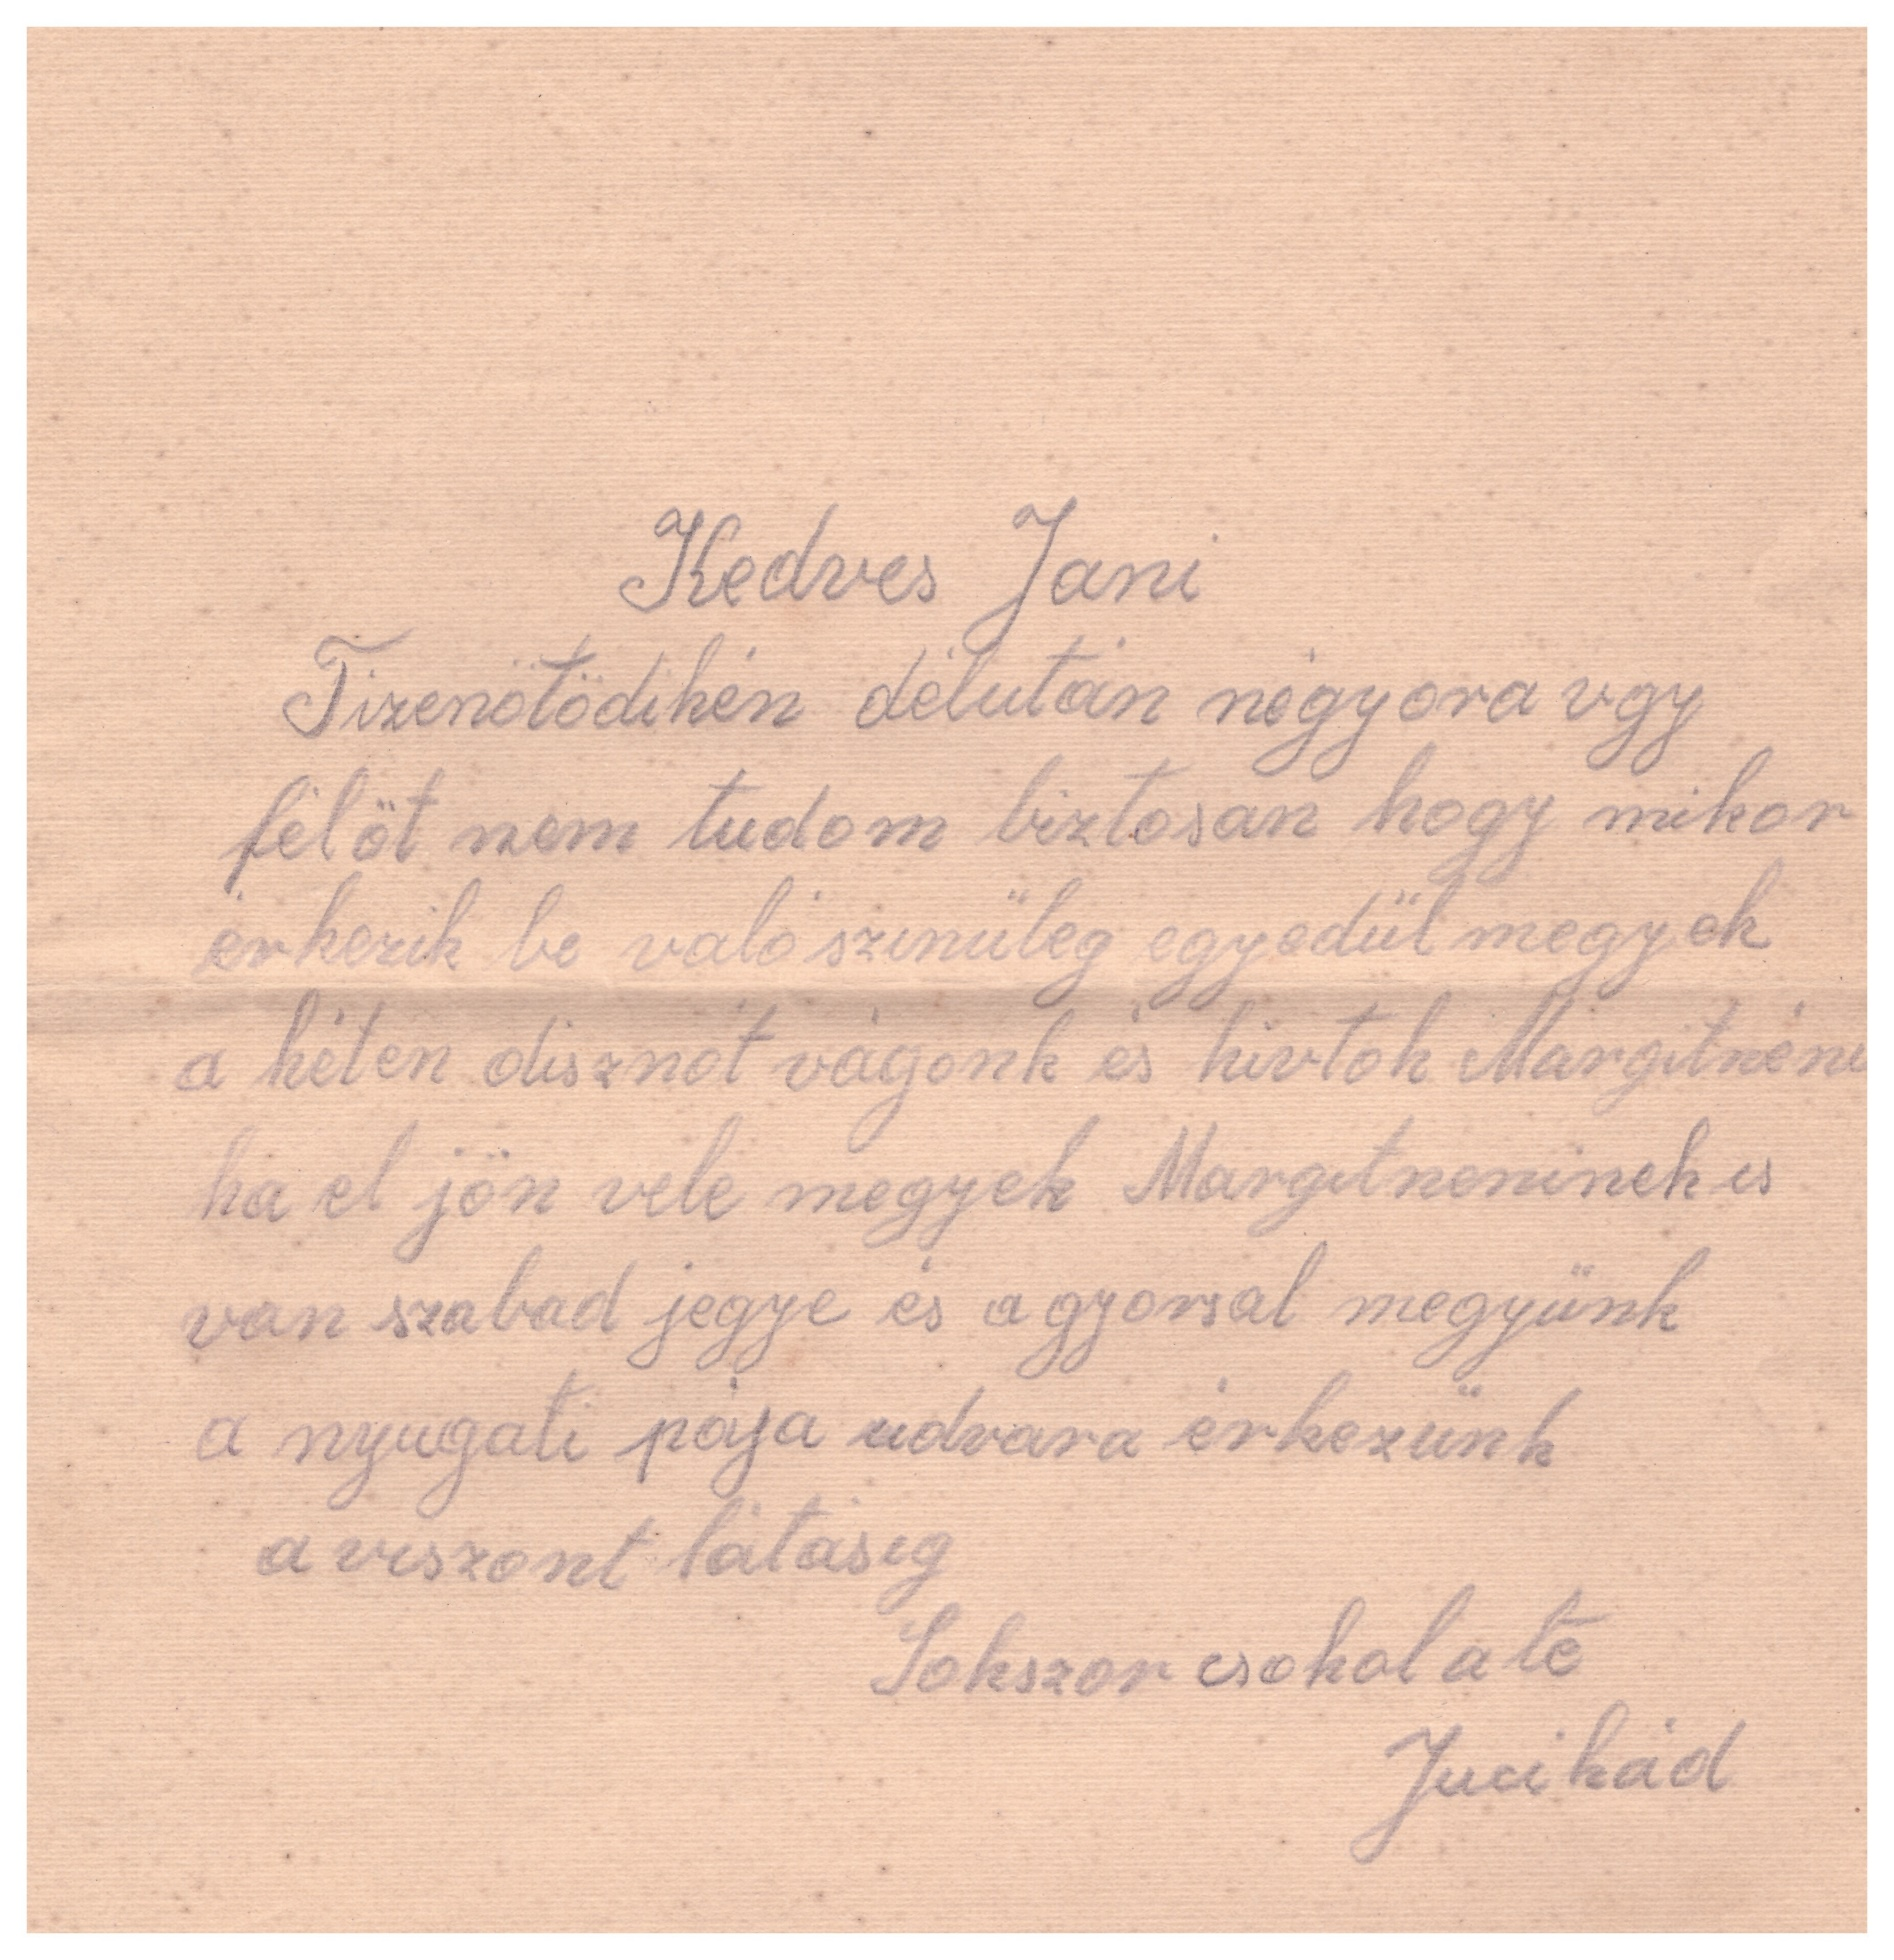 Kedves Jani
Tizenötödikén délután négyora vgy
félöt nem tudom biztosan hogy mikor
érkezik be valószinüleg egyedül megyek
a héten disznót vágonk és hivtok Margitnéni
ha el jön vele megyek Margitneninek is
van szabad jegye és a gyorsal megyünk
a nyugati pája udvara érkezünk
a viszont látásig
Sokszor csokol a te
Jucikád